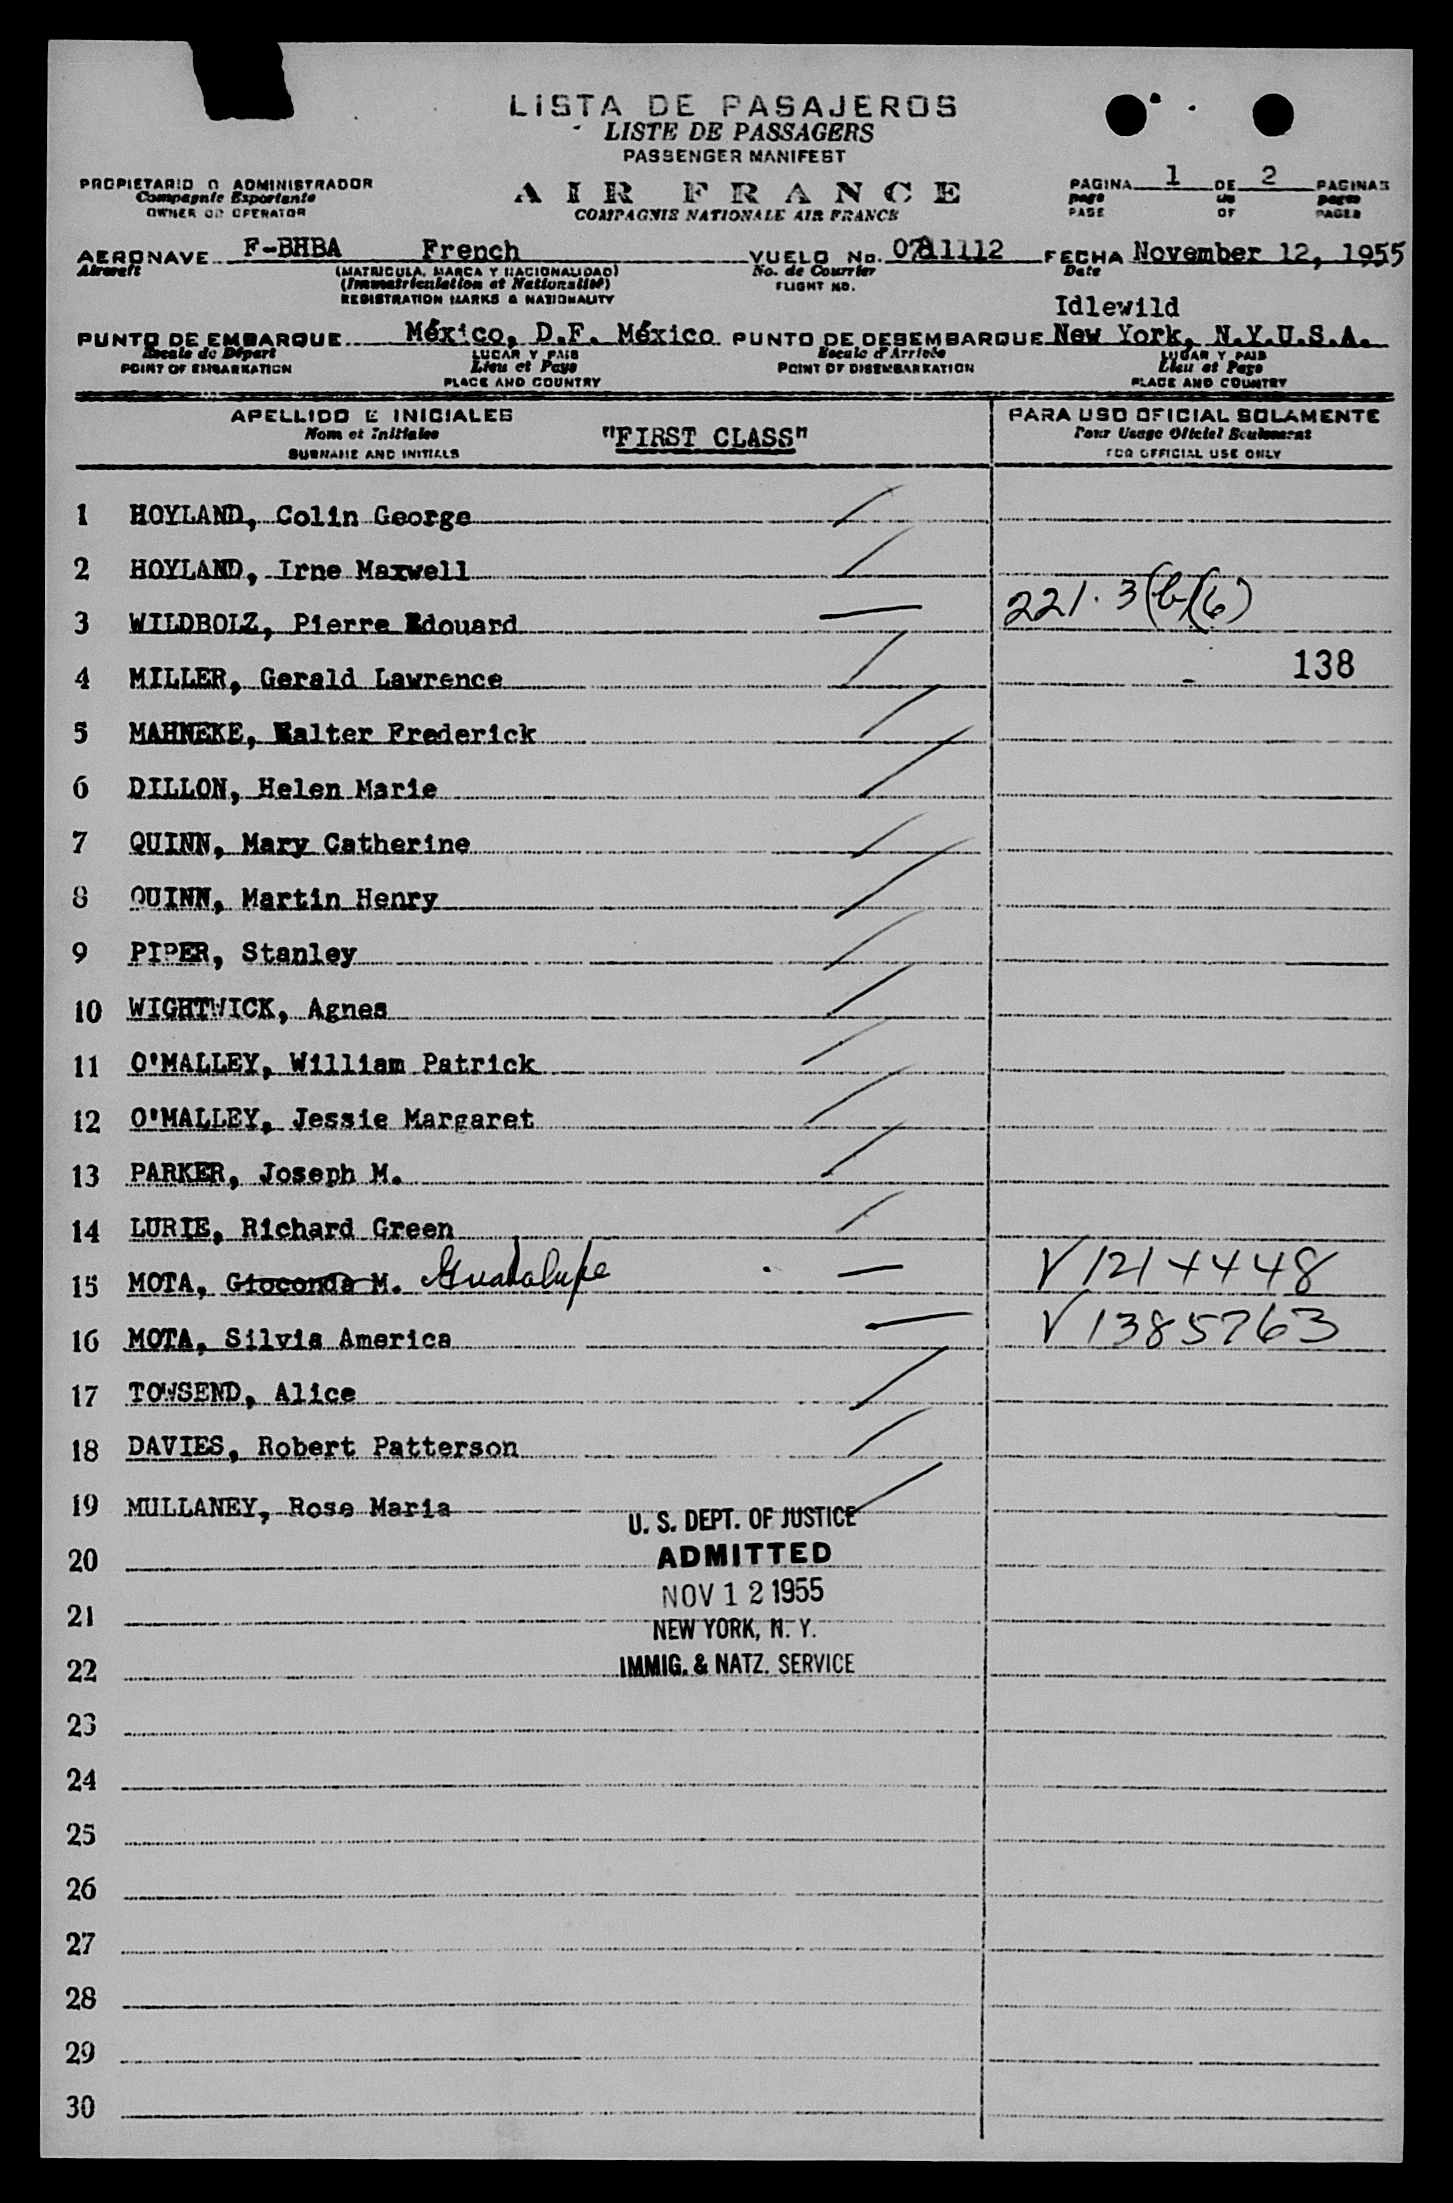 LISTA DE PASAJEROS
LISTE DE PASSAGERS
PASSENGER MANIFEST
PROPIETARIO O ADMINISTRADOR
Compagnie Exportante
OWNER OR OPERATOR
AIR FRANCE
COMPAGNIE NATIONALE AIR FRANCE
PAGINA 1 DE 2 PAGINAS
page de pages
PAGE OF PAGES
AERONAVE F-BHBA French VUELO No. 1112 FECHA November 12, 1955
Aircraft (MATRICULA, MARCA Y NACIONALIDAD) No. de Courrier Date
(Immatriculation et Nationalité) FLIGHT NO.
REGISTRATION MARKS & NATIONALITY
Idlewild
PUNTO DE EMBARQUE México, D.F. México PUNTO DE DESEMBARQUE New York, N.Y.U.S.A.
Escale de Départ LUGAR Y PAIS Escale d'Arrivée LUGAR Y PAIS
POINT OF EMBARKATION Lieu et Pays POINT OF DISEMBARKATION Lieu et Pays
PLACE AND COUNTRY PLACE AND COUNTRY
APELLIDO E INICIALES PARA USO OFICIAL SOLAMENTE
Nom et Initiales "FIRST CLASS" Pour Usage Officiel Seulement
SURNAME AND INITIALS FOR OFFICIAL USE ONLY
1 HOYLAND, Colin George
2 HOYLAND, Irne Maxwell
3 WILDBOLZ, Pierre Edouard 221.3(b)(6)
4 MILLER, Gerald Lawrence 138
5 MAHNEKE, Walter Frederick
6 DILLON, Helen Marie
7 QUINN, Mary Catherine
8 QUINN, Martin Henry
9 PIPER, Stanley
10 WIGHTWICK, Agnes
11 O'MALLEY, William Patrick
12 O'MALLEY, Jessie Margaret
13 PARKER, Joseph M.
14 LURIE, Richard Green
15 MOTA, Gioconda M. Guadalupe V1214448
16 MOTA, Silvia America V1385763
17 TOWSEND, Alice
18 DAVIES, Robert Patterson
19 MULLANEY, Rose Maria
U. S. DEPT. OF JUSTICE
20 ADMITTED
NOV 12 1955
21
NEW YORK, N. Y.
22 IMMIG. & NATZ. SERVICE
23
24
25
26
27
28
29
30